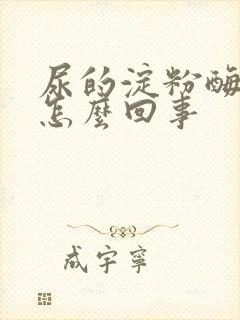 尿的淀粉酶
怎麼回事
成宇寧